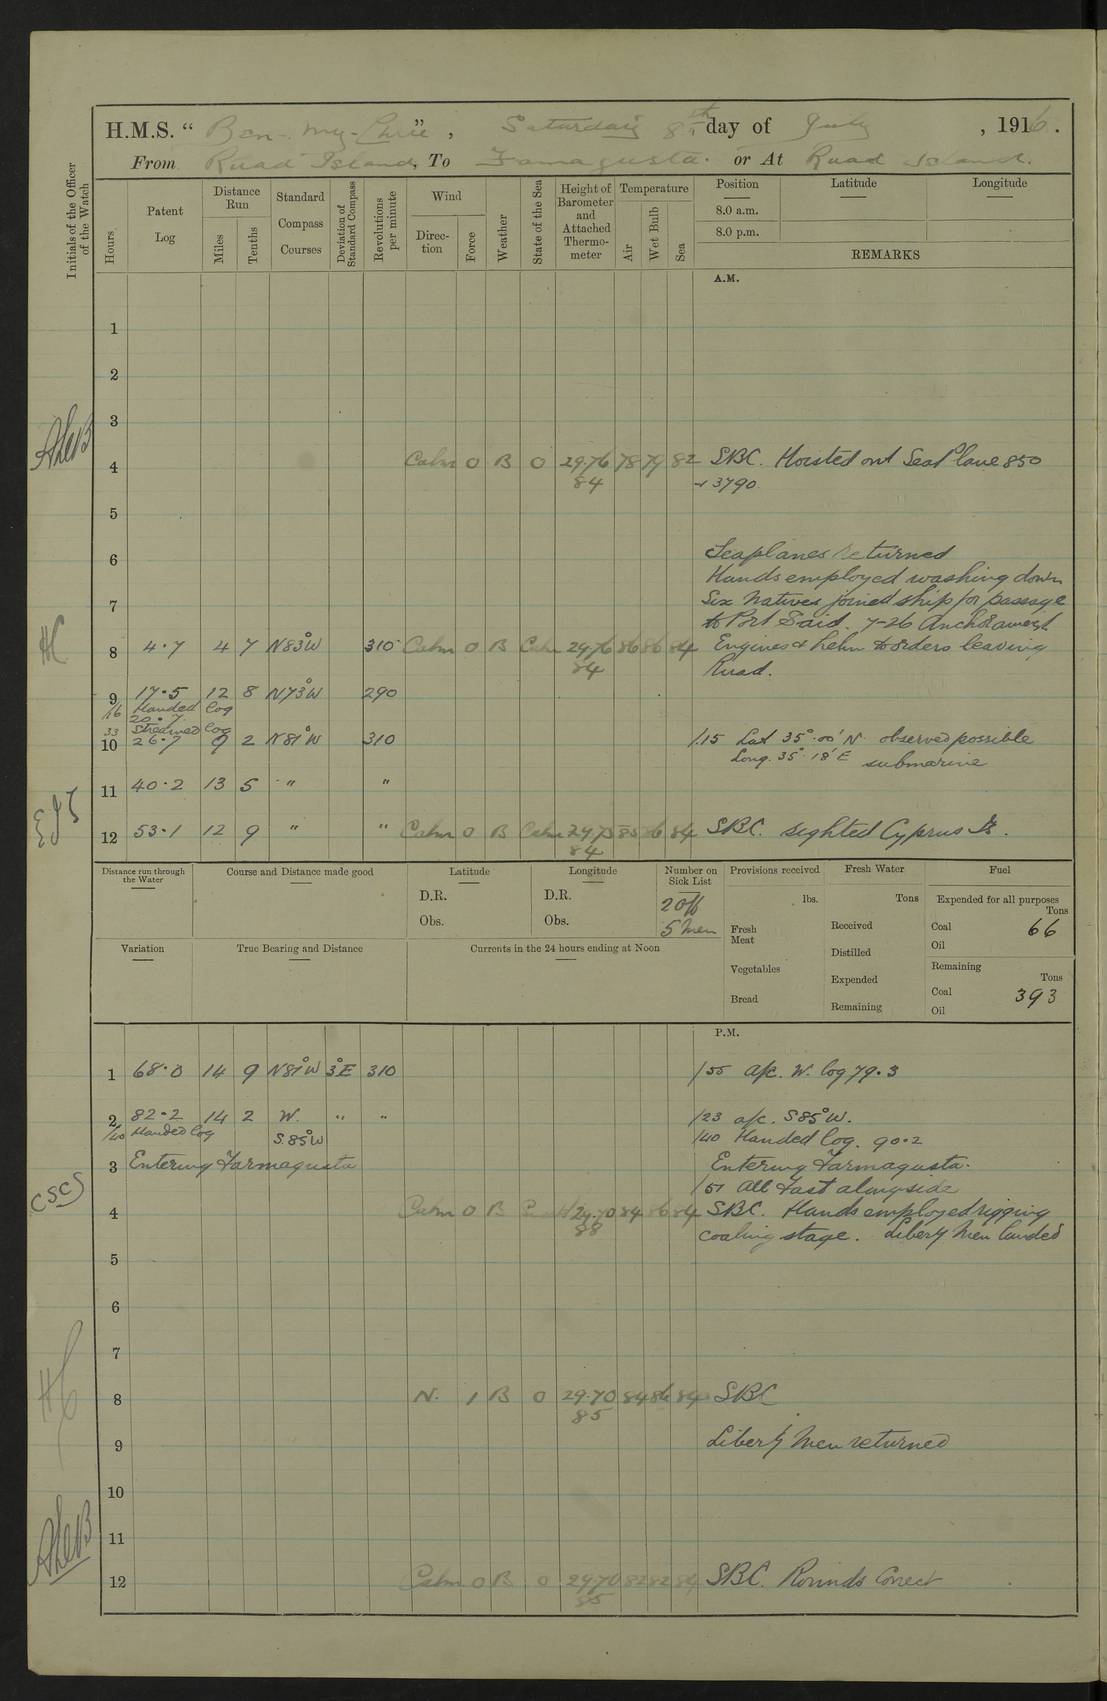 H.M.S. “ Ben-my-Chree ” , Saturday 8th day of July , 1916 .
From Ruad Island , To Famagusta . or At Ruad Island .
Initials of the Officer of the Watch
Hours
Patent Log
Distance Run
Miles
Tenths
Standard Compass Courses
Deviation of Standard Compass
Revolutions per minute
Wind
Direc-tion
Force
Weather
State of the Sea
Height of Barometer and Attached Thermo-meter
Temperature
Air
Wet Bulb
Sea
Position
8.0 a.m.
8.0 p.m.
Latitude
Longitude
REMARKS
A.M.
1
2
3
4 Calm 0 B 0 29.76 78 79 82 SBC. Hoisted out SeaPlane 850
84 + 3790
5
6 Seaplanes returned
Hands employed washing down
7 Six Natives joined ship for passage
to Port Said. 7-26 Anchor aweigh
8 4.7 4 7 N83°W 310 Calm 0 B Calm 29.76 86 86 84 Engines & helm to orders leaving
84 Ruad.
9 17.5 12 8 N73°W 290
/16 Handed log
20.7
33 Streamed log
10 26.7 9 2 N81°W 310 /.15 Lat 35°.00' N. observed possible
Long. 35° 18' E submarine
11 40.2 13 5 " "
12 53.1 12 9 " " Calm 0 B Calm 29.75 85 86 84 SBC. sighted Cyprus Is.
84
Distance run through the Water
Course and Distance made good
Latitude
D.R.
Obs.
Longitude
D.R.
Obs.
Number on Sick List
2 Off
5 Men
Provisions received
lbs.
Fresh Meat
Vegetables
Bread
Fresh Water
Tons
Received
Distilled
Expended
Remaining
Fuel
Expended for all purposes
Tons
Coal 66
Oil
Remaining
Tons
Coal 393
Oil
Variation
True Bearing and Distance
Currents in the 24 hours ending at Noon
P.M.
1 68.0 14 9 N81°W 3°E 310 /55 a/c. W. log 79.3
2 82.2 14 2 W. " " /23 a/c. S85°W.
/40 Handed log S.85°W /40 Handed log. 90.2
3 Entering Farmagusta Entering Farmagusta.
/57 All fast alongside
4 Calm 0 B 29.70 84 86 84 SBC. Hands employed rigging
88 coaling stage. Liberty Men landed
5
6
7
8 N. 1 B 0 29.70 84 86 84 SBC
85
9 Liberty Men returned
10
11
12 Calm 0 B 0 29.70 82 82 84 SBC. Rounds Correct
85